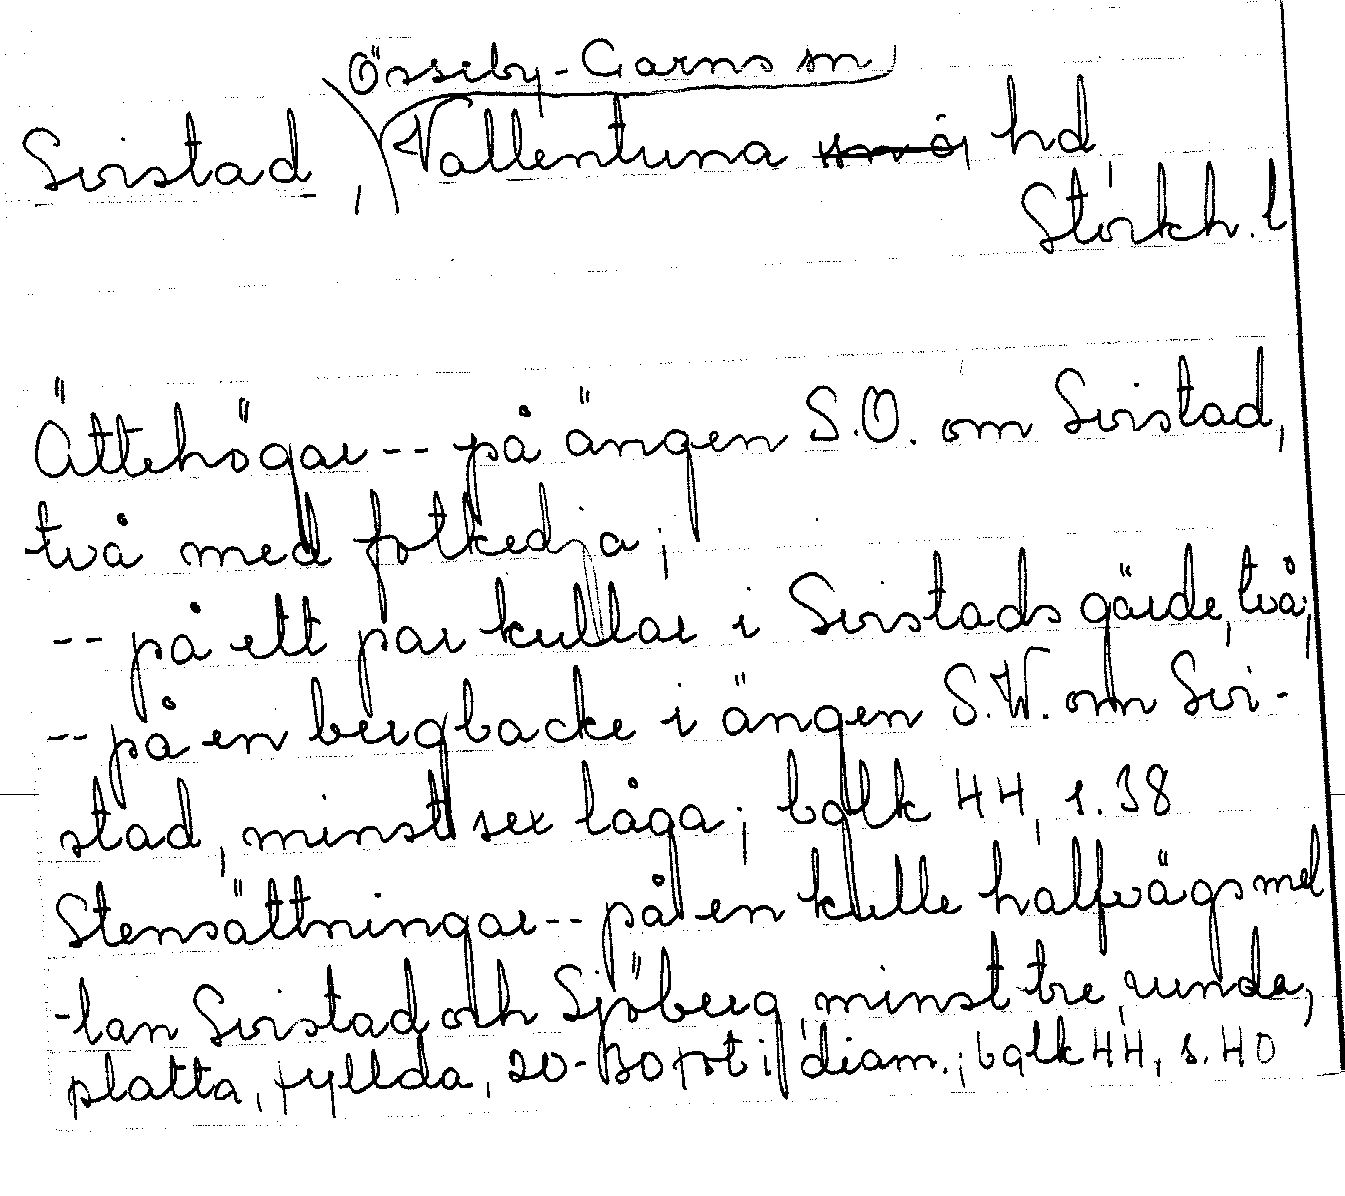 Össeby-Garns sn
Svistad, Vallentuna hd,
Stockh. l
Ättehögar -- på ängen S.O. om Svistad,
två med fotkedja;
-- på ett par kullar i Svistads gärde, två;
-- på en bergbacke i ängen S.W. om Svi-
stad, minst sex låga; balk 44, s. 38
Stensättningar -- på en kulle halfvägs mel
-lan Svistad och Sjöberg, minst tre, runda,
platta, fyllda, 20-30 fot i diam.; balk 44, s. 40